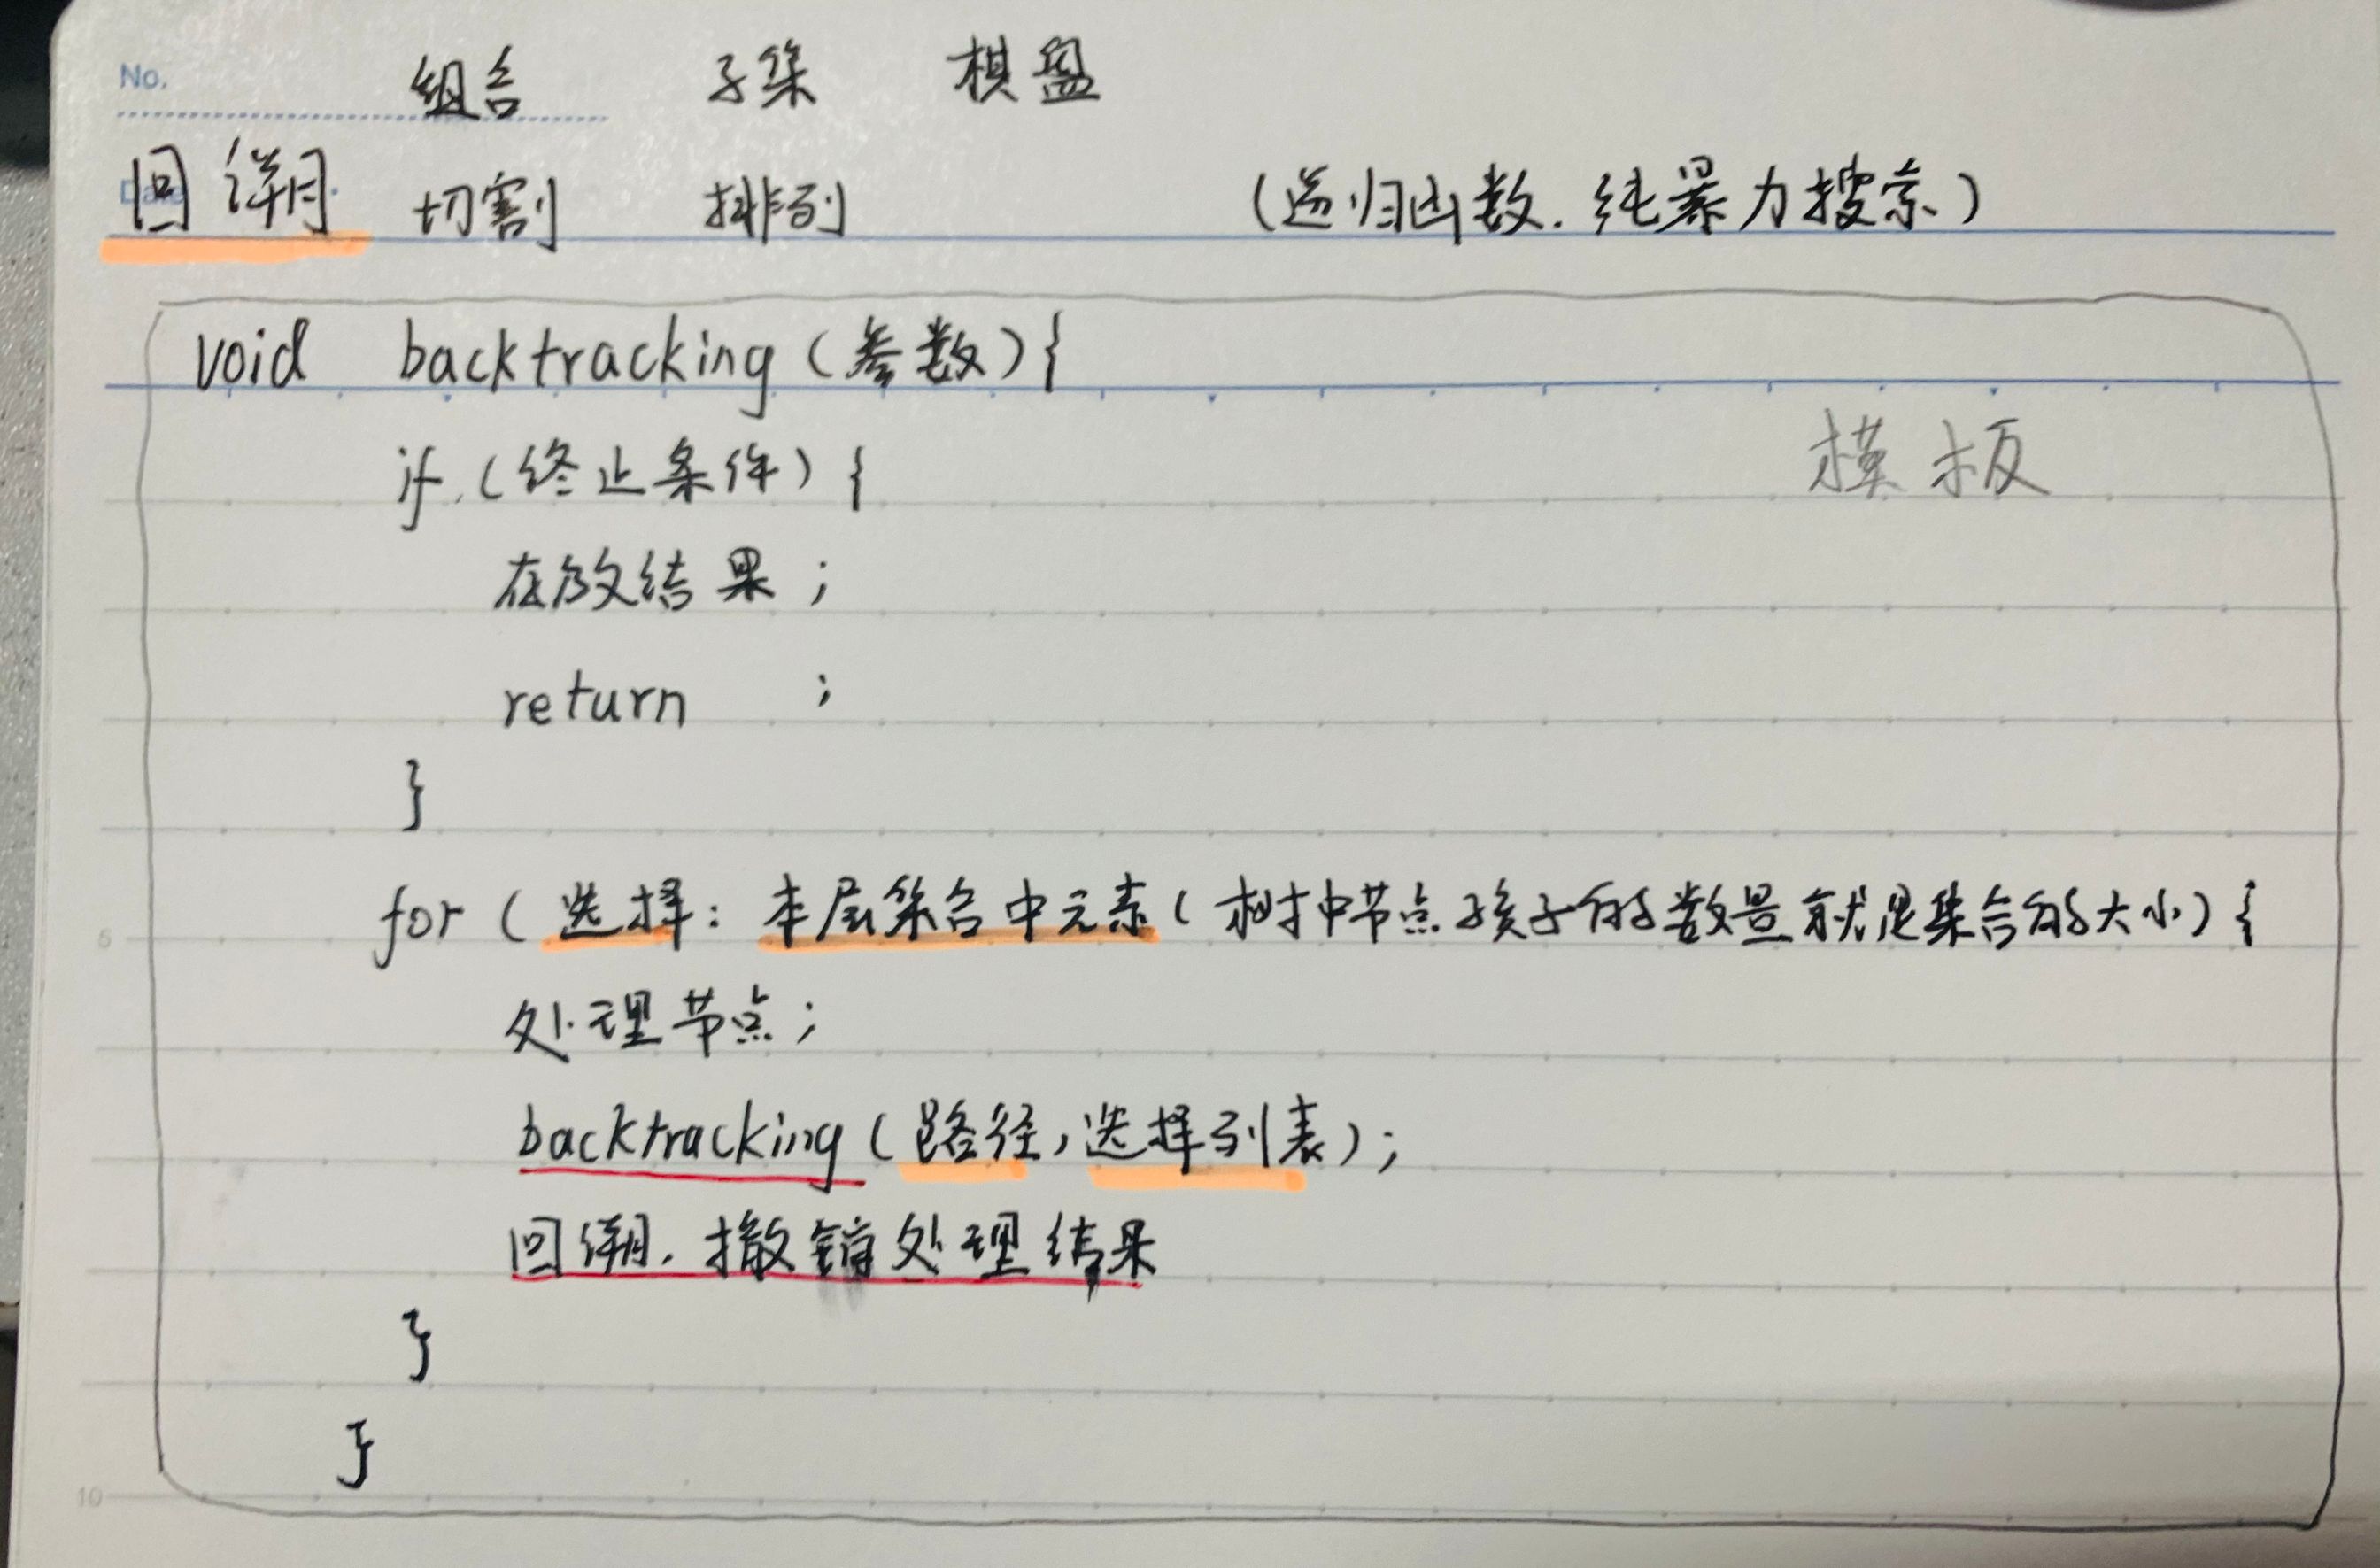 No.
组合 子集 棋盘
Date
回溯 切割 排列 (递归函数.纯暴力搜索)
void backtracking(参数){
模板
if(终止条件){
存放结果;
return ;
}
5
for(选择:本层集合中元素(树中节点孩子的数量就是集合的大小){
处理节点;
backtracking(路径,选择列表);
回溯.撤销处理结果
}
}
10